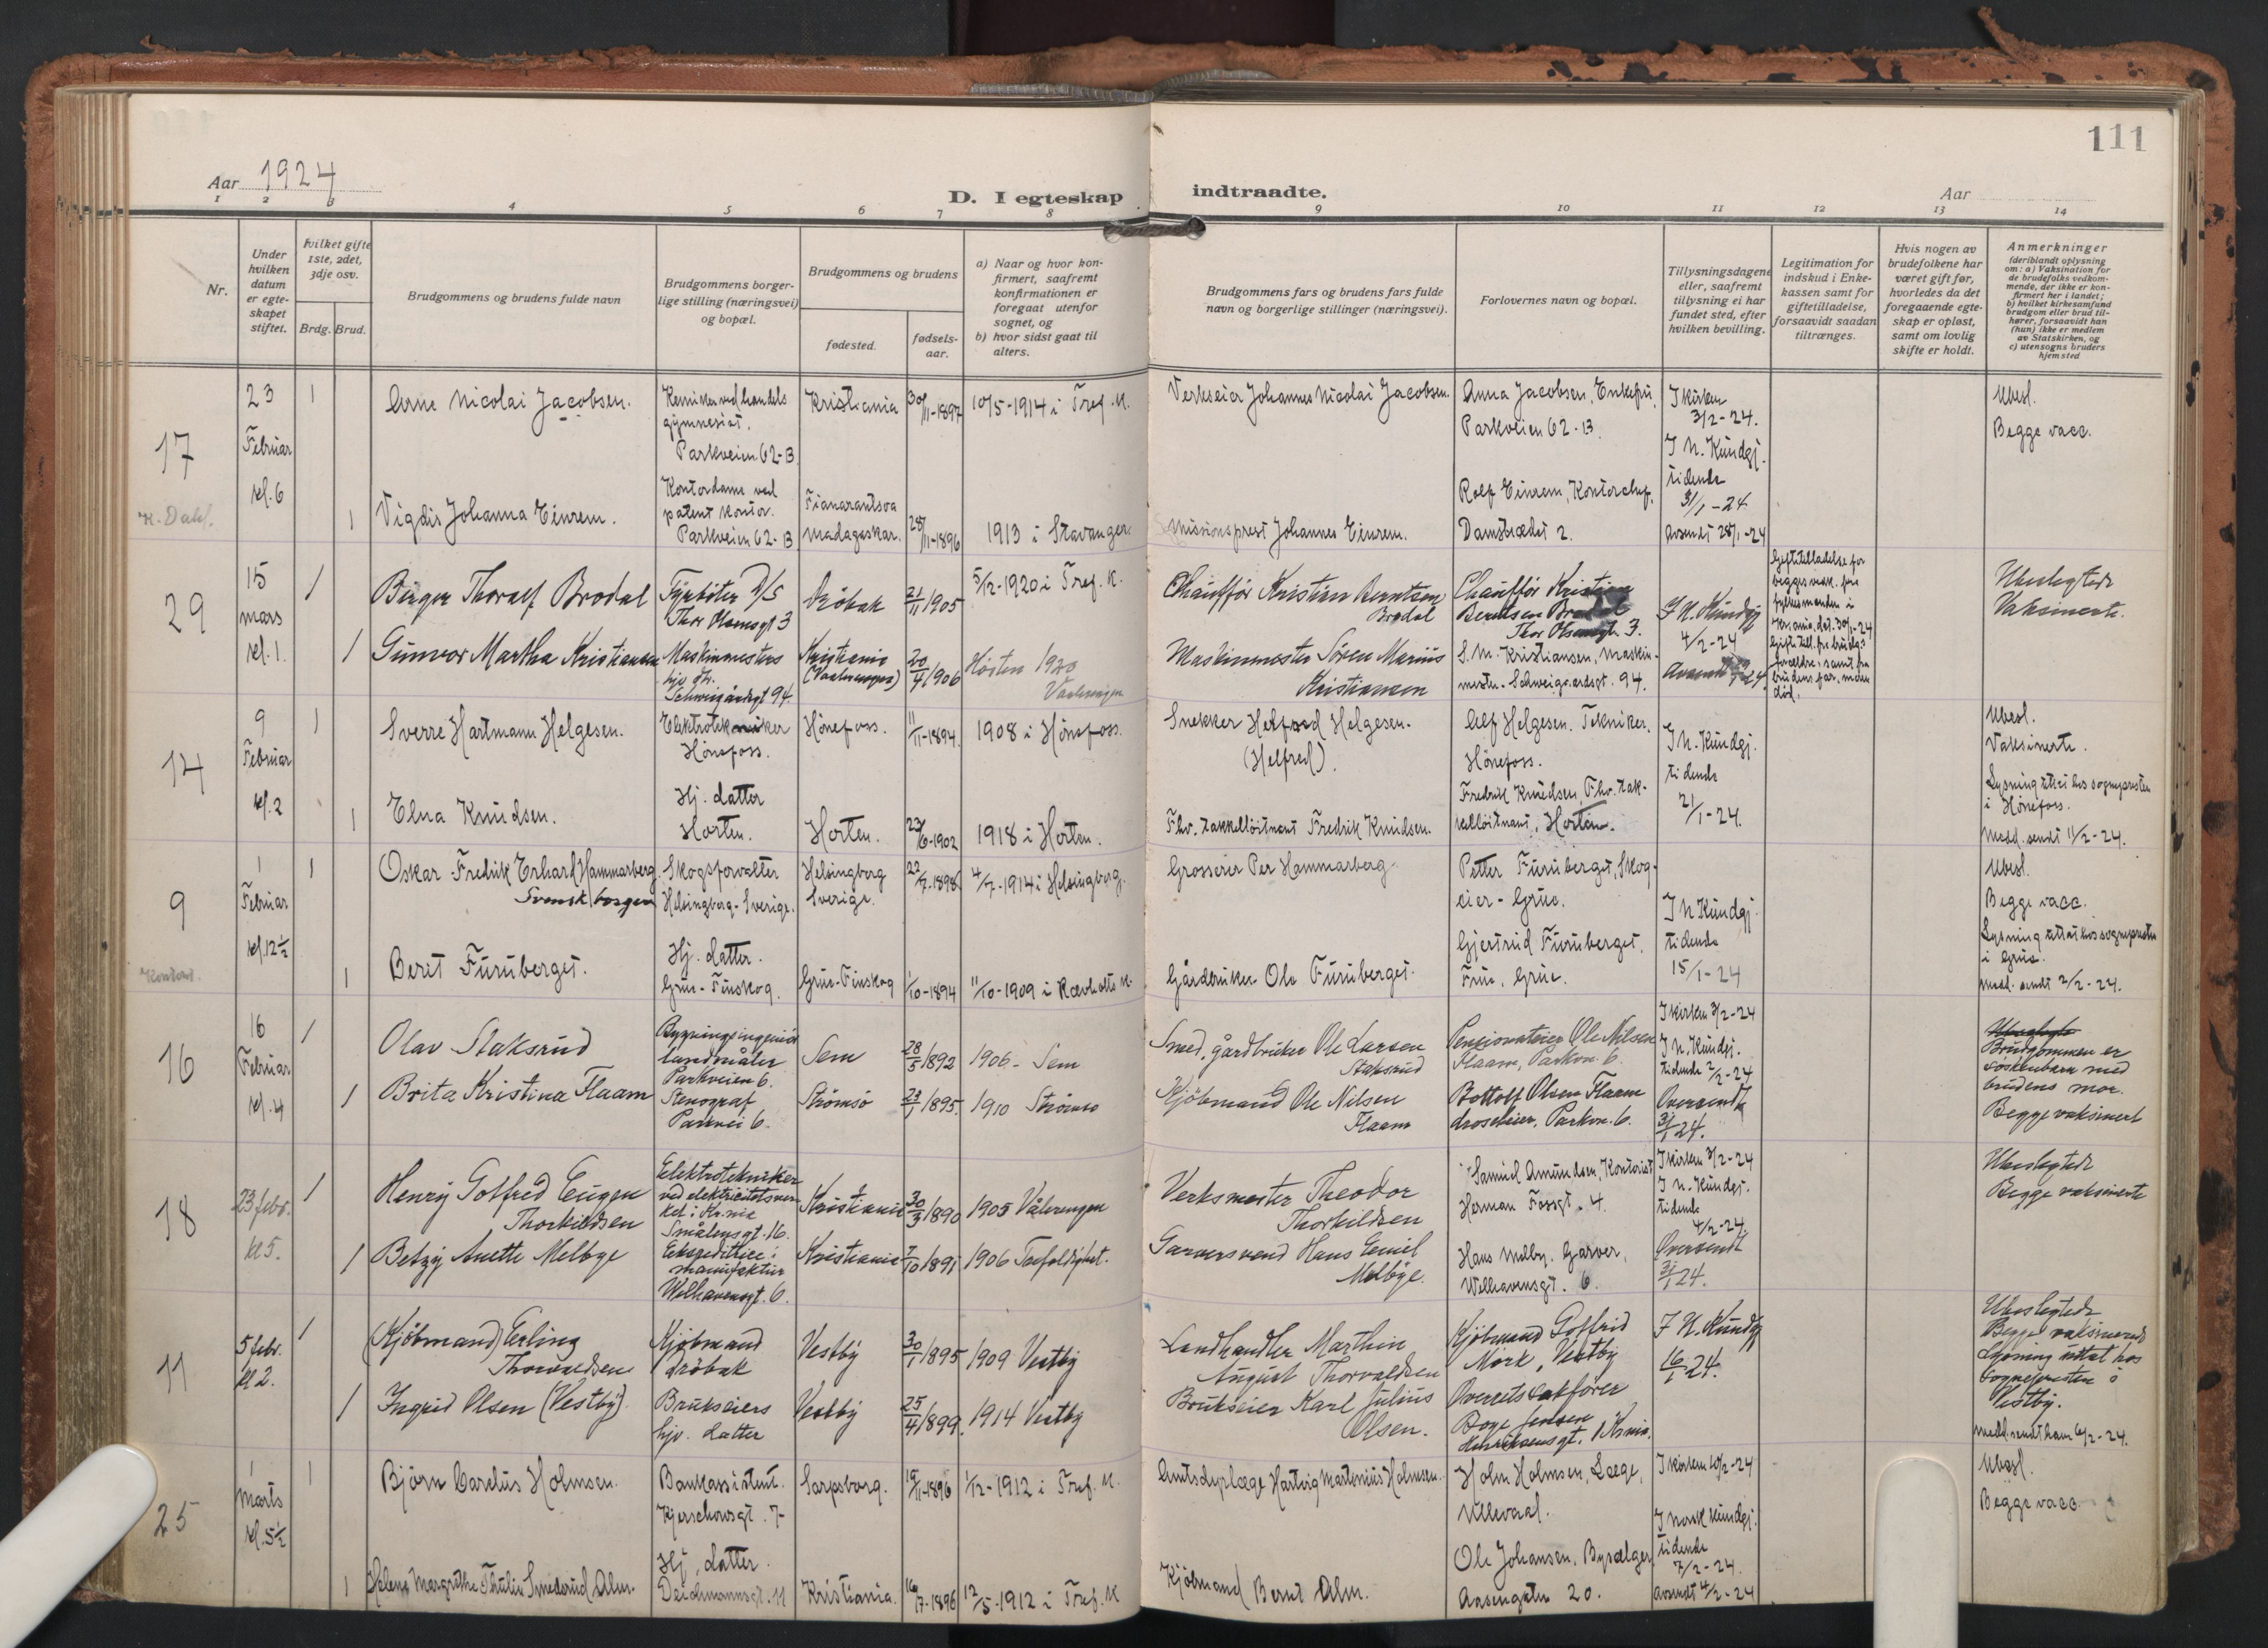 111
Aar 1924
D. I egteskap indtraadte.
Aar
1 2 3 4 5 6 7 8 9 10 11 12 13 14
Nr.
Under hvilken datum er egteskapet stiftet.
Hvilket gifte 1ste, 2det, 3dje osv.
Brdg. Brud.
Brudgommens og brudens fulde navn
Brudgommens borgerlige stilling (næringsvei) og bopæl.
Brudgommens og brudens
fødested.
fødselsaar.
a) Naar og hvor konfirmert, saafremt konfirmationen er foregaat utenfor sognet, og
b) hvor sidst gaat til alters.
Brudgommens fars og brudens fars fulde navn og borgerlige stillinger (næringsvei).
Forlovernes navn og bopæl.
Tillysningsdagene eller, saafremt tillysning ei har fundet sted, efter hvilken bevilling.
Legitimation for indskud i Enkekassen samt for giftetilladelse, forsaavidt saadan tiltrænges.
Hvis nogen av brudefolkene har været gift før, hvorledes da det foregaaende egteskap er opløst, samt om lovlig skifte er holdt.
Anmerkninger (deriblandt oplysning om: a) Vaksination for de brudefolks vedkommende, der ikke er konfirmert her i landet; b) hvilket kirkesamfund brudgom eller brud tilhører, forsaavidt han (hun) ikke er medlem av Statskirken, og c) utensogns bruders hjemsted
17
K. Dahl.
23 Februar kl. 6
1
Arne Nicolai Jacobsen.
Kemiker ved handels gymnasiet. Parkveien 62-B
Kristiania
30/11-1897
10/5-1914 i Tref. K.
Verkseier Johannes Nicolai Jacobsen.
Anna Jacobsen, Enkefru, Parkveien 62-B.
I kirken 3/2-24.
I N. Kundgj. tidende 31/1-24
Avsendt 28/1-24
Ubesl.
Begge vacc.
1
Vigdis Johanna Einrem.
Kontordame ved patent kontor. Parkveien 62-B.
Fianarantsoa Madagaskar.
28/11-1896
1913 i Stavanger.
Missionsprest Johannes Einrem.
Rolf Einrem, Kontorchef, Damstrædet 2.
29
15 mars kl. 1.
1
Birger Thoralf Brodal
Fyrbøter D/S
Thor Olsensgt 3
Drøbak
21/11 1905
5/12-1920 i Tref. K.
Chauffør Kristian Berntsen Brodal
Chauffør Kristian Berntsen Brodal Thor Olsensgt. 3.
I N. Kundgj 4/2-24
Ubeslegtede
Vaksinerte.
1
Gunvor Martha Kristiansen
Maskinmesters hjv. dtr. Schweigårdsgt 94.
Kristiania (Vaalerengen)
20/4 1906
Høsten 1920 Vaalerengen
Maskinmester Søren Marius Kristiansen
S. M. Kristiansen, Maskinmester - Schweigaardsgt. 94.
14
9 Februar kl. 2
1
Sverre Hartmann Helgesen.
Elektrotekniker Hønefoss.
Hønefoss.
11/11-1894.
1908 i Hønefoss.
Snekker Helfred Helgesen. (Helfred)
Alf Helgesen. Tekniker. Hønefoss.
I N. Kundgj. tidende 21/1-24.
Ubesl.
Vaksinerte.
Lysning uttat hos sognepresten i Hønefoss.
Medd. sendt 11/2-24.
1
Elna Knudsen.
Hj. datter Horten.
Horten.
23/6-1902
1918 i Horten.
Fhv. takkelløitnant Fredrik Knudsen.
Fredrik Knudsen, Fhv. takkelløitnant, Horten.
9
1 Februar kl. 12 1/2
1
Oskar Fredrik Erhard Hammarberg.
Svensk borger
Skogsforvalter Helsingborg - Sverige.
Helsingborg Sverige.
22/7-1898
4/7-1914 i Helsingborg.
Grosserer Per Hammarberg.
Petter Furuberget, Skogeier - Grue.
I N Kundgj. tidende 15/1-24
Ubesl.
Begge vacc.
Lysning uttat hos sognepresten i Grue.
Medd. sendt 2/2-24.
1
Beret Furuberget.
Hj. datter. Grue - Finskog.
Grue-Finskog
1/10-1894
11/10-1909 i Revholts K.
Gårdbruker Ole Furuberget.
Gjertrud Furuberget, Frue, Grue.
16
16 Februar kl. 4
1
Olav Slaksrud
Bygningsingeniør landmåler Parkveien 6.
Sem
28/5 1892
1906 - Sem
Smed, gårdbruker Ole Larsen Slaksrud
Pensionateier Ole Nilsen Flaam, Parkv. 6.
I kirken 3/2-24
I N. Kundgj. tidende 2/2-24
Oversendt 31/1 24.
Ubeslegtede
Brudgommen er søskenbarn med brudens mor.
Begge vaksinert
1
Brita Kristina Flaam
Stenograf Parkvei 6.
Strømsø
23/1 1895.
1910 Strømsø
Kjøbmand Ole Nilsen Flaam
Bottolf Olsen Flaam drosjeeier, Parkv. 6.
18
23 febr. kl 5.
1
Henry Gotfred Eugen Thorkildsen
Elektrotekniker ved elektricitetsverket i Kr.nia Smålensgt. 16.
Kristiania
30/3 1890
1905 Vålerengen
Verksmester Theodor Thorkildsen
Samuel Amundsen, Kontorist Herman Fossgt. 4.
I kirken 3/2-24
I N. Kundgj. tidende 4/2-24.
Oversendt 31/1 24.
Ubeslegtede
Begge vaksinerte
1
Betzy Anette Melbye
Ekspeditrice i manufaktur Welhavensgt. 6.
Kristiania
7/10 1891
1906 Trefoldighet.
Garversvend Hans Emiel Melbye.
Hans Melby. Garver, Welhavensgt. 6.
11
5 febr. kl 2.
1
(Kjøbmand) Erling Thorvaldsen
Kjøbmand Drøbak
Vestby
30/1 1895
1909 Vestby
Landhandler Marthin August Thorvaldsen
Kjøbmand Gotfrid Mørk, Vestby
I N. Kundgj 16/1 24.
Ubeslegtede
Begge vaksinerede
Lysning uttat hos Sognepresten i Vestby.
Medd. sendt ham 6/2-24.
1
Ingrid Olsen (Vestby).
Brukseiers hjv. datter
Vestby
25/4 1899.
1914 Vestby
Brukseier Karl Julius Olsen.
Overretssakfører
Henriksensgt. Kr.nia.
25
1 Marts kl. 5 1/2
1
Bjørn Carelius Holmsen.
Bankassistent. Kjerschowsgt. 7-
Sarpsborg.
19/11-1896
1/12-1912 i Tref. K.
Amtsdyrlæge Hartvig Martinius Holmsen.
Holm Holmsen, Læge, Ullevaal.
I kirken 10/2-24
I norsk kundgj. tidende 7/2-24.
Avsendt 4/2-24
Ubesl.
Begge vacc.
1
Helene Margrethe Thulin Smederud Alm.
Hj. datter. Deichmannsgt. 11
Kristiania.
16/7-1896
12/5-1912 i Tref. K
Kjøbmand Bernt Alm.
Ole Johansen, Bysælger Aasengaten 20.